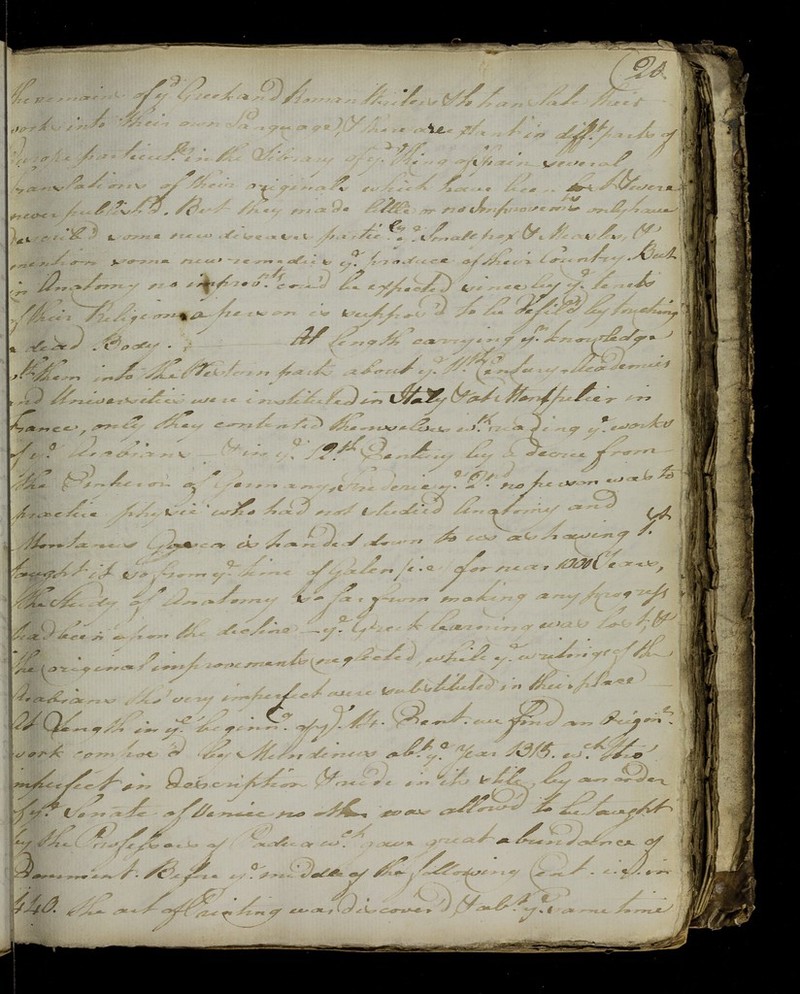 20.
the remains of yᵉ Greek and Roman Writers & to translate their
works into their own Language) & there are extant in diffᵗ parts of
Europe particulʸ in the Library of yᵉ King of Spain several
translations of their originals which have been lost & were
never publish'd. But they made little or no Improvemᵗˢ only have
describ'd some new diseases particˡʸ yᵉ Small pox & Measles, &
mention some new remedies yᵉ produce of their Country. But
in Anatomy no improvᵐᵗˢ cou'd be expected since by yᵉ tenets
of their Religion a person is suppos'd to be defil'd by touching
a dead Body. At length carrying yʳ knowledge
wᵗʰ them into the Western parts about yᵉ 11ᵗʰ Century Academies
and Universities were instituted in Italy & at Montpelier in
France, only they contented themselves wᵗʰ reading yᵉ works
of yᵉ Arabians — & in yᵉ 12ᵗʰ Century by a decree from
the Emperor of Germany Frederic yᵉ 2ⁿᵈ. no person was to
practice physic who had not studied Anatomy and
Montanus is handed down to us as having
taught it so from yᵉ time of Galen i.e. for near 1000 Years,
the Study of Anatomy so far from making any progress
had been upon the decline — yᵉ Greek learning was lost, &
the original improvements neglected, while yᵉ writings of the
Arabians tho' very imperfect were substituted in their place —
At Length in yᵉ beginnᵍ of yᵉ Cent. we find an Origⁿ.
work compos'd by Mundinus abᵗ yᵉ Year 1315. wᶜʰ tho'
imperfect in description & rude in its stile, by an order
of yᵉ Senate of Venice no other was allow'd to be taught
by the Professors of Padua wᶜʰ gave great abundance of
Before yᵉ middle of the following Cent. i.e. in
1440. the art of Printing was discover'd, & abᵗ yᵉ same time